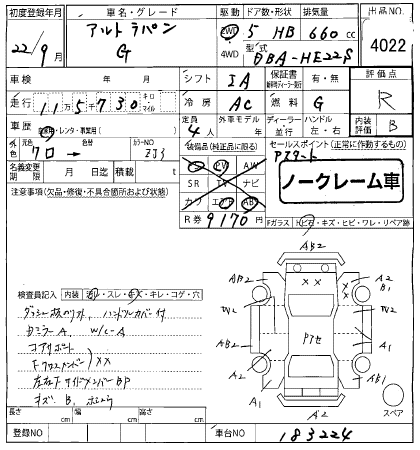 初度登録年月 車名・グレード 駆動 ドア数・形状 排気量 出品NO.
22/9月 アルトラパン G 2WD 5 HB 660 cc 4022
4WD 型式 DBA-HE22S
車検 年 月 シフト IA 保証書 有・無 評価点
走行 115730 キロ マイル 冷房 AC 燃料 G R
車歴 自家用・レンタ・事業用( ) 定員 4人 外車モデル 年 ディーラー 並行 ハンドル 左・右 内装 B
外色 元色 クロ → 色替 カラーNO ZJ3 装備品(純正品に限る) セールスポイント(正常に作動するもの)
名義変更期限 月 日迄 積載 t PS PW AW Pスタート
注意事項(欠品・修復・不具合箇所および諸元) SR TV ナビ ノークレーム車
カワ エアB ABS
R券 9170円 Fガラス ヒ石・キズ・ヒビ・ワレ・リペア跡
検査員記入 内装 汚レ・スレ・キズ・キレ・コゲ・穴
ダッシュ板ウリフト ハンドルカバー付
ミラーA W/C-A
コアサポート
Fクロスメンバー )××
左右Fサイドメンバー BP
キズB.
AB2
AB2 A2 B1
W2 W2
AB2 Pアセ A2
A2 AB1
A1 A1
A2 スペア
長さ cm 幅 cm 高さ cm
登録NO 車台NO 183224